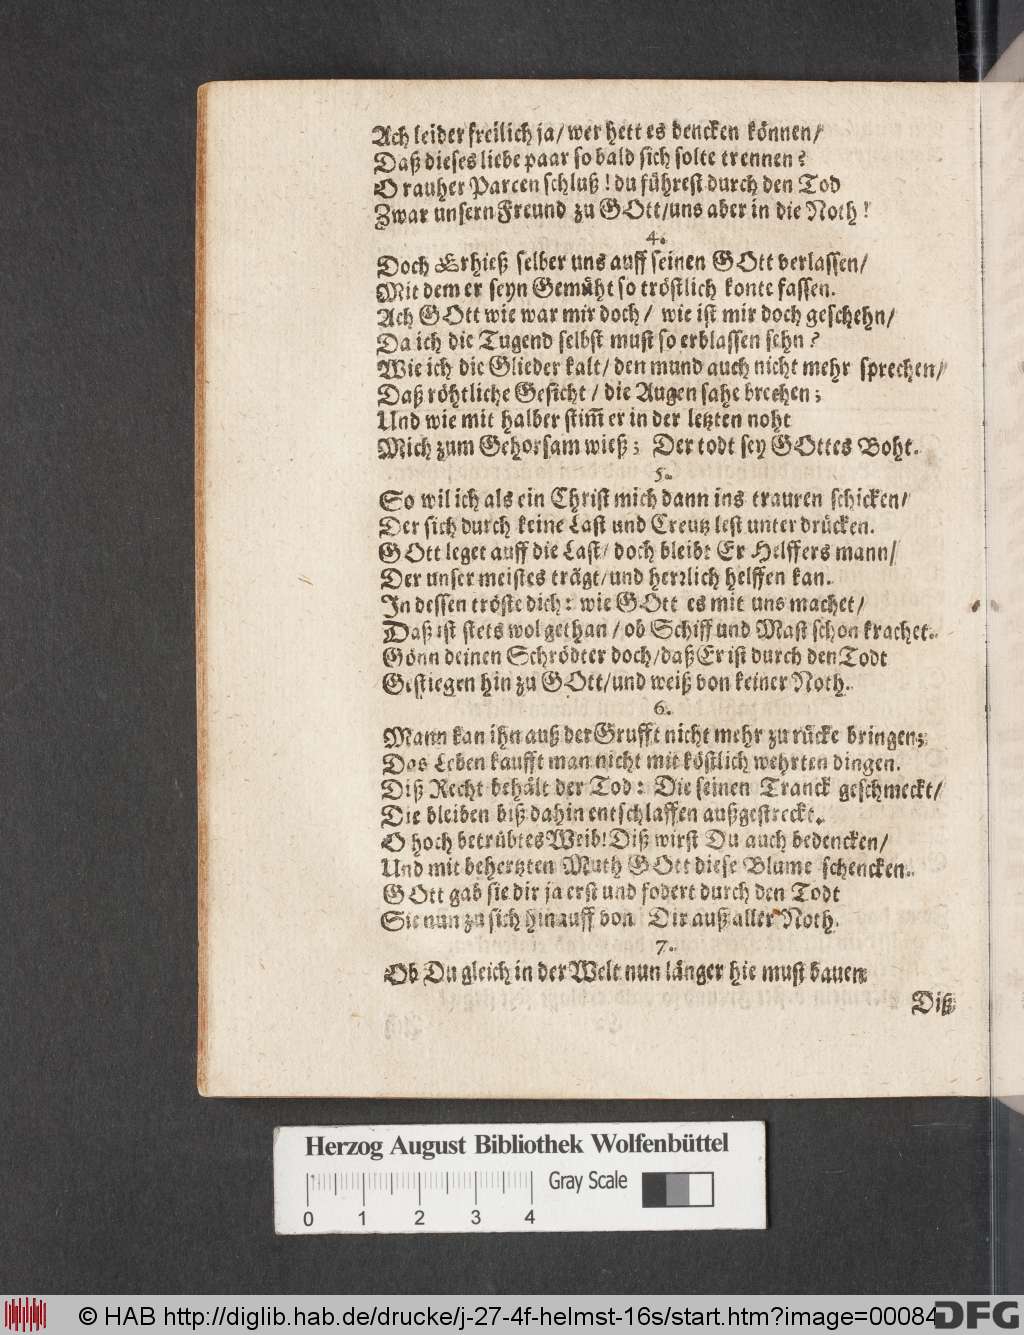 Ach leider freilich ja/ wer hett es dencken können/
Daß dieses liebe paar so bald sich solte trennen?
O rauher Parcen schluß! du führest durch den Tod
Zwar unsern Freund zu GOtt/uns aber in die Noth!
4.
Doch Er hieß selber uns auff seinen GOtt verlassen/
Mit dem er seyn Gemüht so tröstlich konte fassen.
Ach GOtt wie war mir doch/ wie ist mir doch geschehn/
Da ich die Tugend selbst must so erblassen sehn?
Wie ich die Glieder kalt/ den mund auch nicht mehr sprechen/
Daß röhtliche Gesicht/ die Augen sahe brechen;
Und wie mit halber stim̃ er in der letzten noht
Mich zum Gehorsam wieß; Der todt sey GOttes Boht.
5.
So wil ich als ein Christ mich dann ins trauren schicken/
Der sich durch keine Last und Creutz lest unter drücken.
GOtt leget auff die Last/ doch bleibt Er Helffers mann/
Der unser meistes trägt/und hertzlich helffen kan.
In dessen tröste dich: wie GOtt es mit uns machet/
Daß ist stets wol gethan/ ob Schiff und Mast schon krachet.
Gönn deinen Schrödter doch/daß Er ist durch den Todt
Gestiegen hin zu GOtt/und weiß von keiner Noth.
6.
Mann kan ihn auß der Grufft nicht mehr zu rücke bringen;
Das Leben kaufft man nicht mit köstlich wehrten dingen.
Diß Recht behält der Tod: Die seinen Tranck geschmeckt/
Die bleiben biß dahin entschlaffen außgestreckt.
O hoch betrübtes Weib! Diß wirst Du auch bedencken/
Und mit behertzten Muth GOtt diese Blume schencken.
GOtt gab sie dir ja erst und fodert durch den Todt
Sie nun zu sich hinauff von Dir auß aller Noth.
7.
Ob Du gleich in der Welt nun länger hie must bauen
Diß
Herzog August Bibliothek Wolfenbüttel
0 1 2 3 4 Gray Scale
© HAB http://diglib.hab.de/drucke/j-27-4f-helmst-16s/start.htm?image=00084
DFG